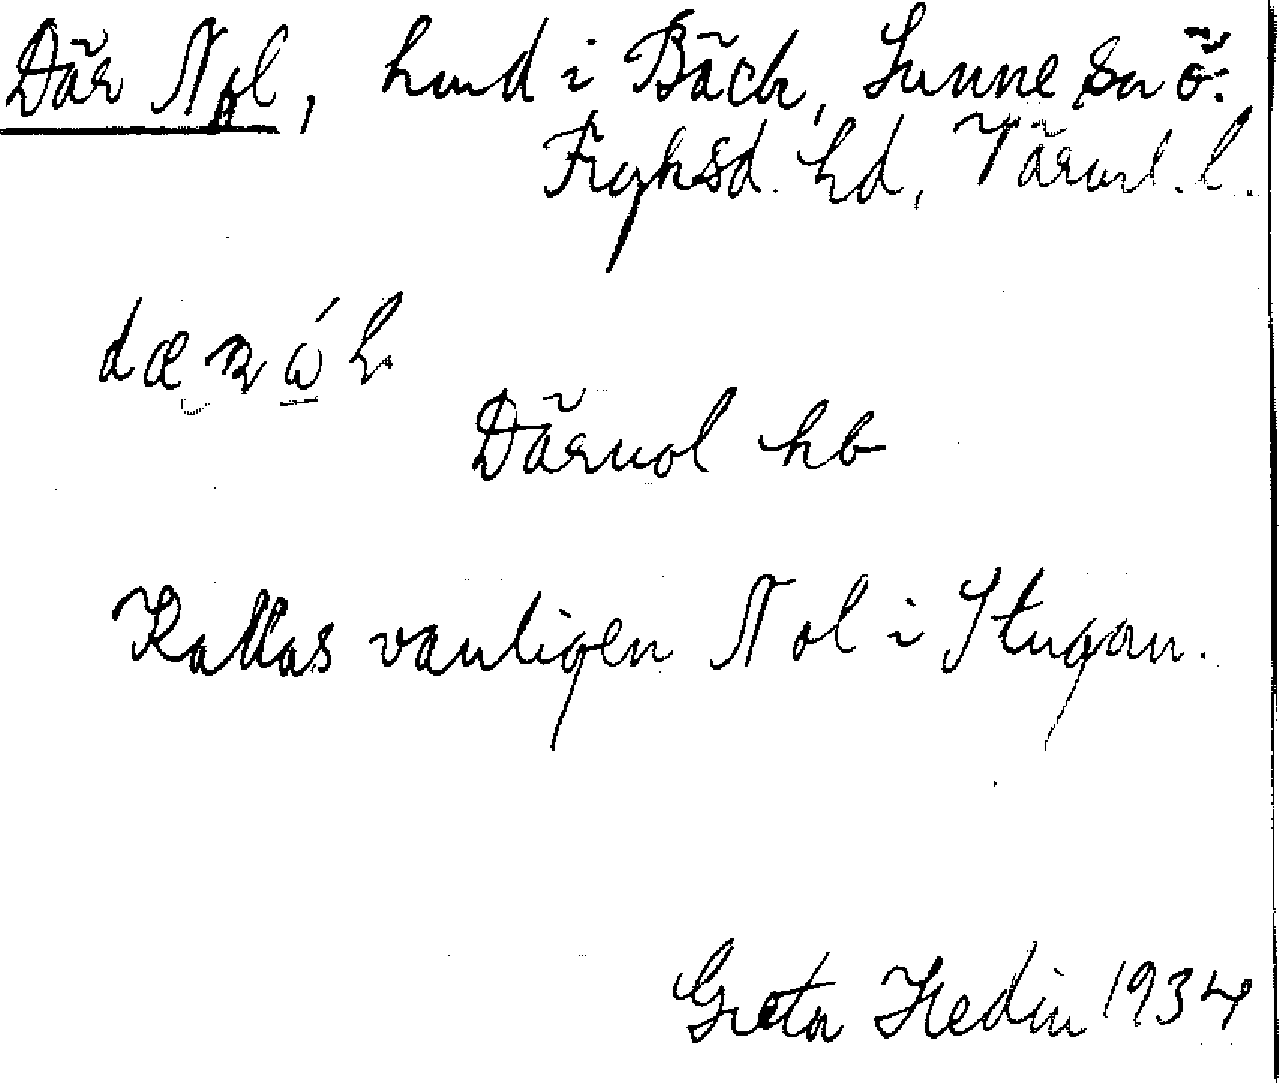 Där Nol, hmd i Bäck, Sunne sn Ö.
Fryksd. hd, Värml. l.
Därnol hb
Kallas vanligen Nol i Stugan.
Greta Hedin 1934